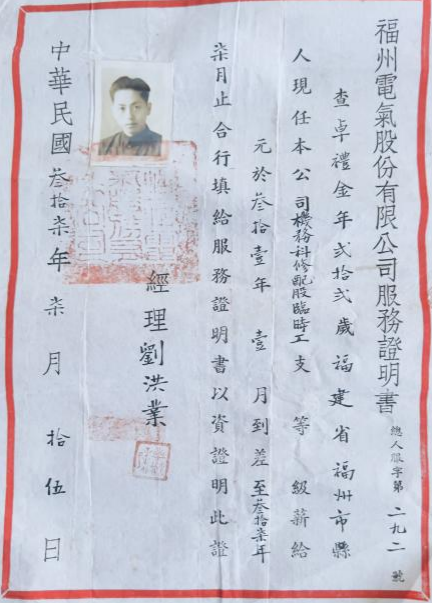 福州電氣股份有限公司服務證明書
總人服字第二九二號
查卓禮金年貳拾貳歲福建省福州市縣
人現任本公司機務科修配股臨時工支 等 級薪給
元於叁拾壹年壹月到差至叁拾柒年
柒月止合行填給服務證明書以資證明此證
經理劉洪業
中華民國叁拾柒年柒月拾伍日